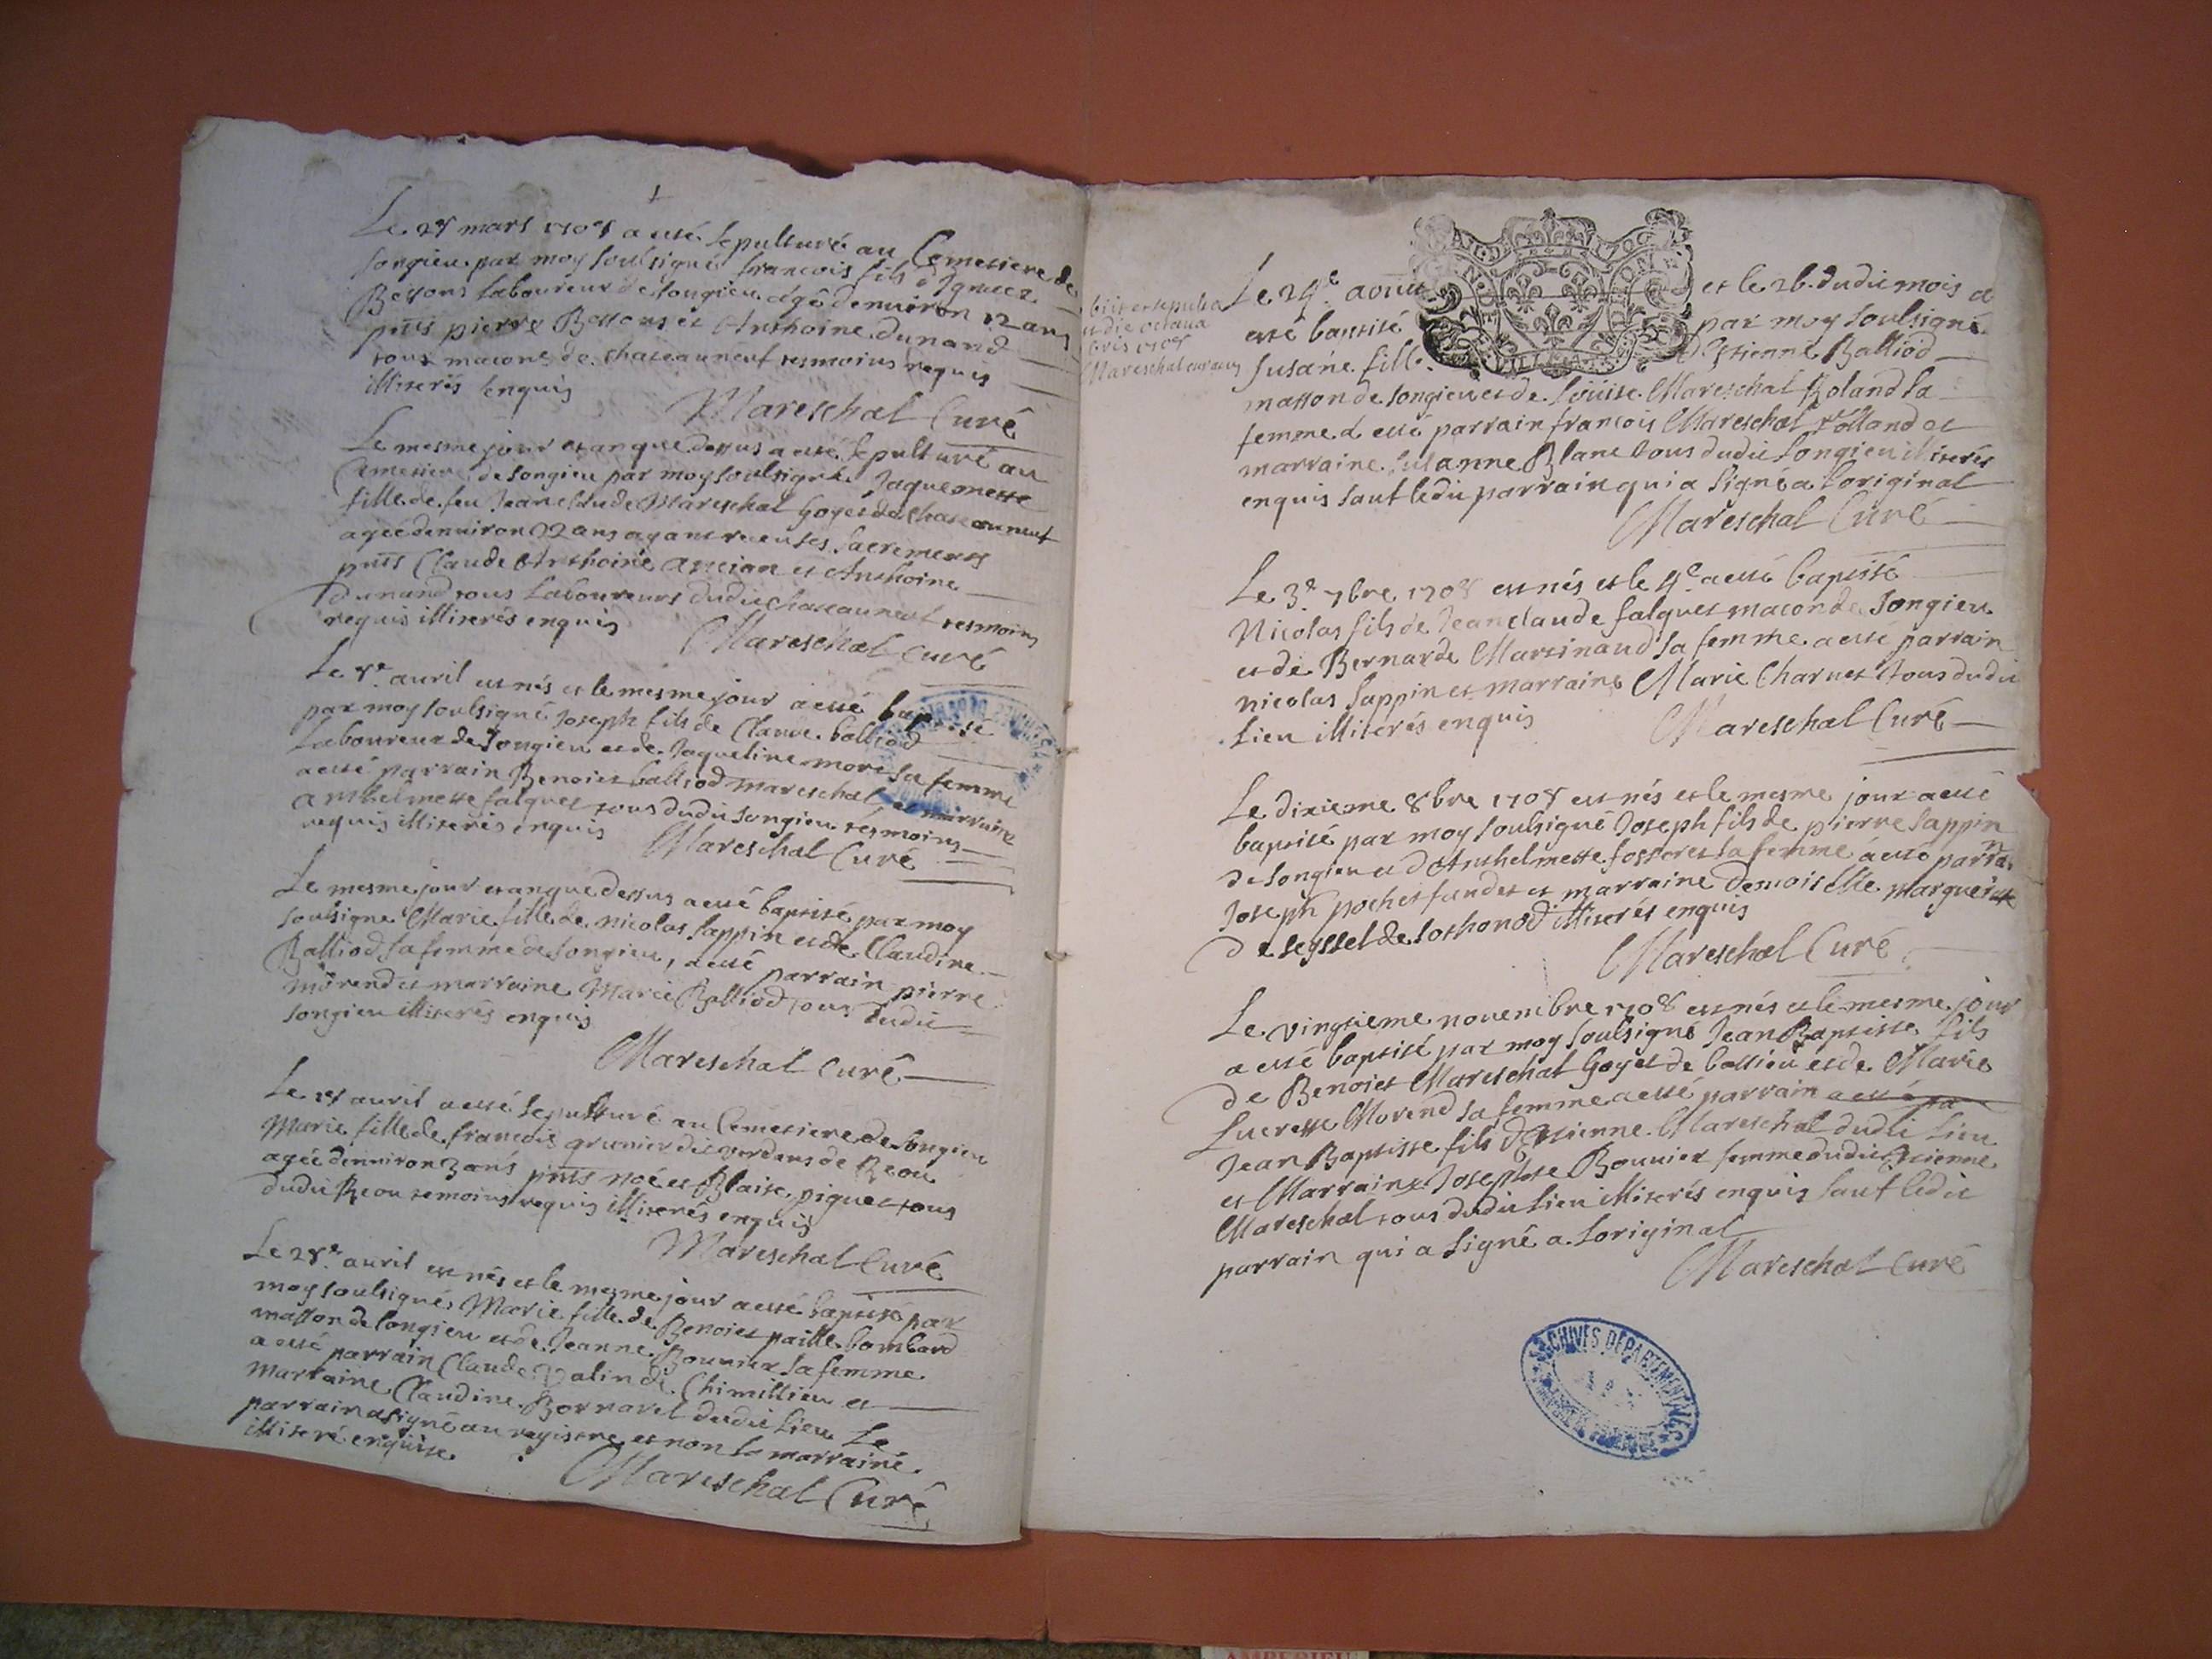 Le 28 mars 1708 a esté sepulturé au Cemetiere de
songieu par moy soulsigné francois fils d'Ignace
Bessons laboureur de songieu agé denuiron 12 ans
pnts pierre Bessons et Anthoine dunand
tous macons de chateauneuf tesmoins requis
illiterés enquis
Mareschal Curé
Le mesme jour et an que dessus a esté sepulturé au
Cemetiere de songieu par moy soulsigné Jaquemette
fille de feu Jean Claude Mareschal Goyet de Chateauneuf
agée denuiron 22 ans ayant receu ses sacrements
pnts Claude Anthoine ancian et Anthoine
dunand tous laboureurs dudit chateauneuf tesmoins
requis illiterés enquis
Mareschal Curé
Le 8e auril est nés et le mesme jour a esté baptisé
par moy soulsigné Joseph fils de Claude balliod
laboureur de songieu et de Jaqueline more sa femme
a esté parrain Benoict balliod mareschal et marraine
Anthelmette falquet tous dudit songieu tesmoins
requis illiterés enquis
Mareschal Curé
Le mesme jour et an que dessus a esté baptisé par moy
soulsigné Marie fille de nicolas sappin et de Claudine
Balliod sa femme de songieu, a esté parrain pierre
morend et marraine Marie Balliod tous dudit
songieu illiterés enquis
Mareschal Curé
Le 18 auril a esté sepulturé au Cemetiere de songieu
Marie fille de francois grunier dit verdans de Beou
agée denuiron 3 ans pnts noé et Blaise piquet tous
dudit Beou temoins requis illiterés enquis
Mareschal Curé
Le 28e auril est nés et le mesme jour a esté baptisé par
moy soulsignés Marie fille de Benoict paille bombard
masson de songieu et de Jeanne Bouuier sa femme
a esté parrain Claude Balin de Chimillieu et
marraine Claudine Bornarel dudit lieu le
parrain a signé au registre et non la marraine
illiteré enquise
Mareschal Curé
obiit et sepulta
est die octaua
bris 1708
Mareschal curatus
Le 24e aoust et le 26 dudit mois a
esté baptisé par moy soulsigné
susane fille d'Estienne Balliod
masson de songieu et de Loüise Mareschal Roland sa
femme a esté parrain francois Mareschal rolland et
marraine susanne Blanc tous dudit songieu illiterés
enquis sauf ledit parrain qui a signé a l'original
Mareschal Curé
Le 3e 7bre 1708 est nés et le 4e a esté baptisé
Nicolas fils de Jean claude falquet macon de songieu
et de Bernarde Martinaud sa femme a esté parrain
nicolas sappin et marraine Marie Charuet tous dudit
lieu illiterés enquis
Mareschal Curé
Le dixieme 8bre 1708 est nés et le mesme jour a esté
baptisé par moy soulsigné Joseph fils de pierre sappin
de songieu et d'Anthelmette fosseret sa femme a esté parrain
Joseph pochet fandet et marraine demoiselle marguerite
de seyssel de sothonod illiterés enquis
Mareschal Curé
Le vingtieme nouembre 1708 est nés et le mesme jour
a esté baptisé par moy soulsigné Jean Baptiste fils
de Benoict Mareschal Goyet de bassieu et de Marie
Lucresse Morend sa femme a esté parrain a esté pa
Jean Baptiste fils d'Estienne Mareschal dudit lieu
et Marraine Josephte Bouuier femme dudit Estienne
Mareschal tous dudit lieu illiterés enquis sauf ledit
parrain qui a signé a l'original
Mareschal Curé
ARCHIVES DEPARTEMENTALES